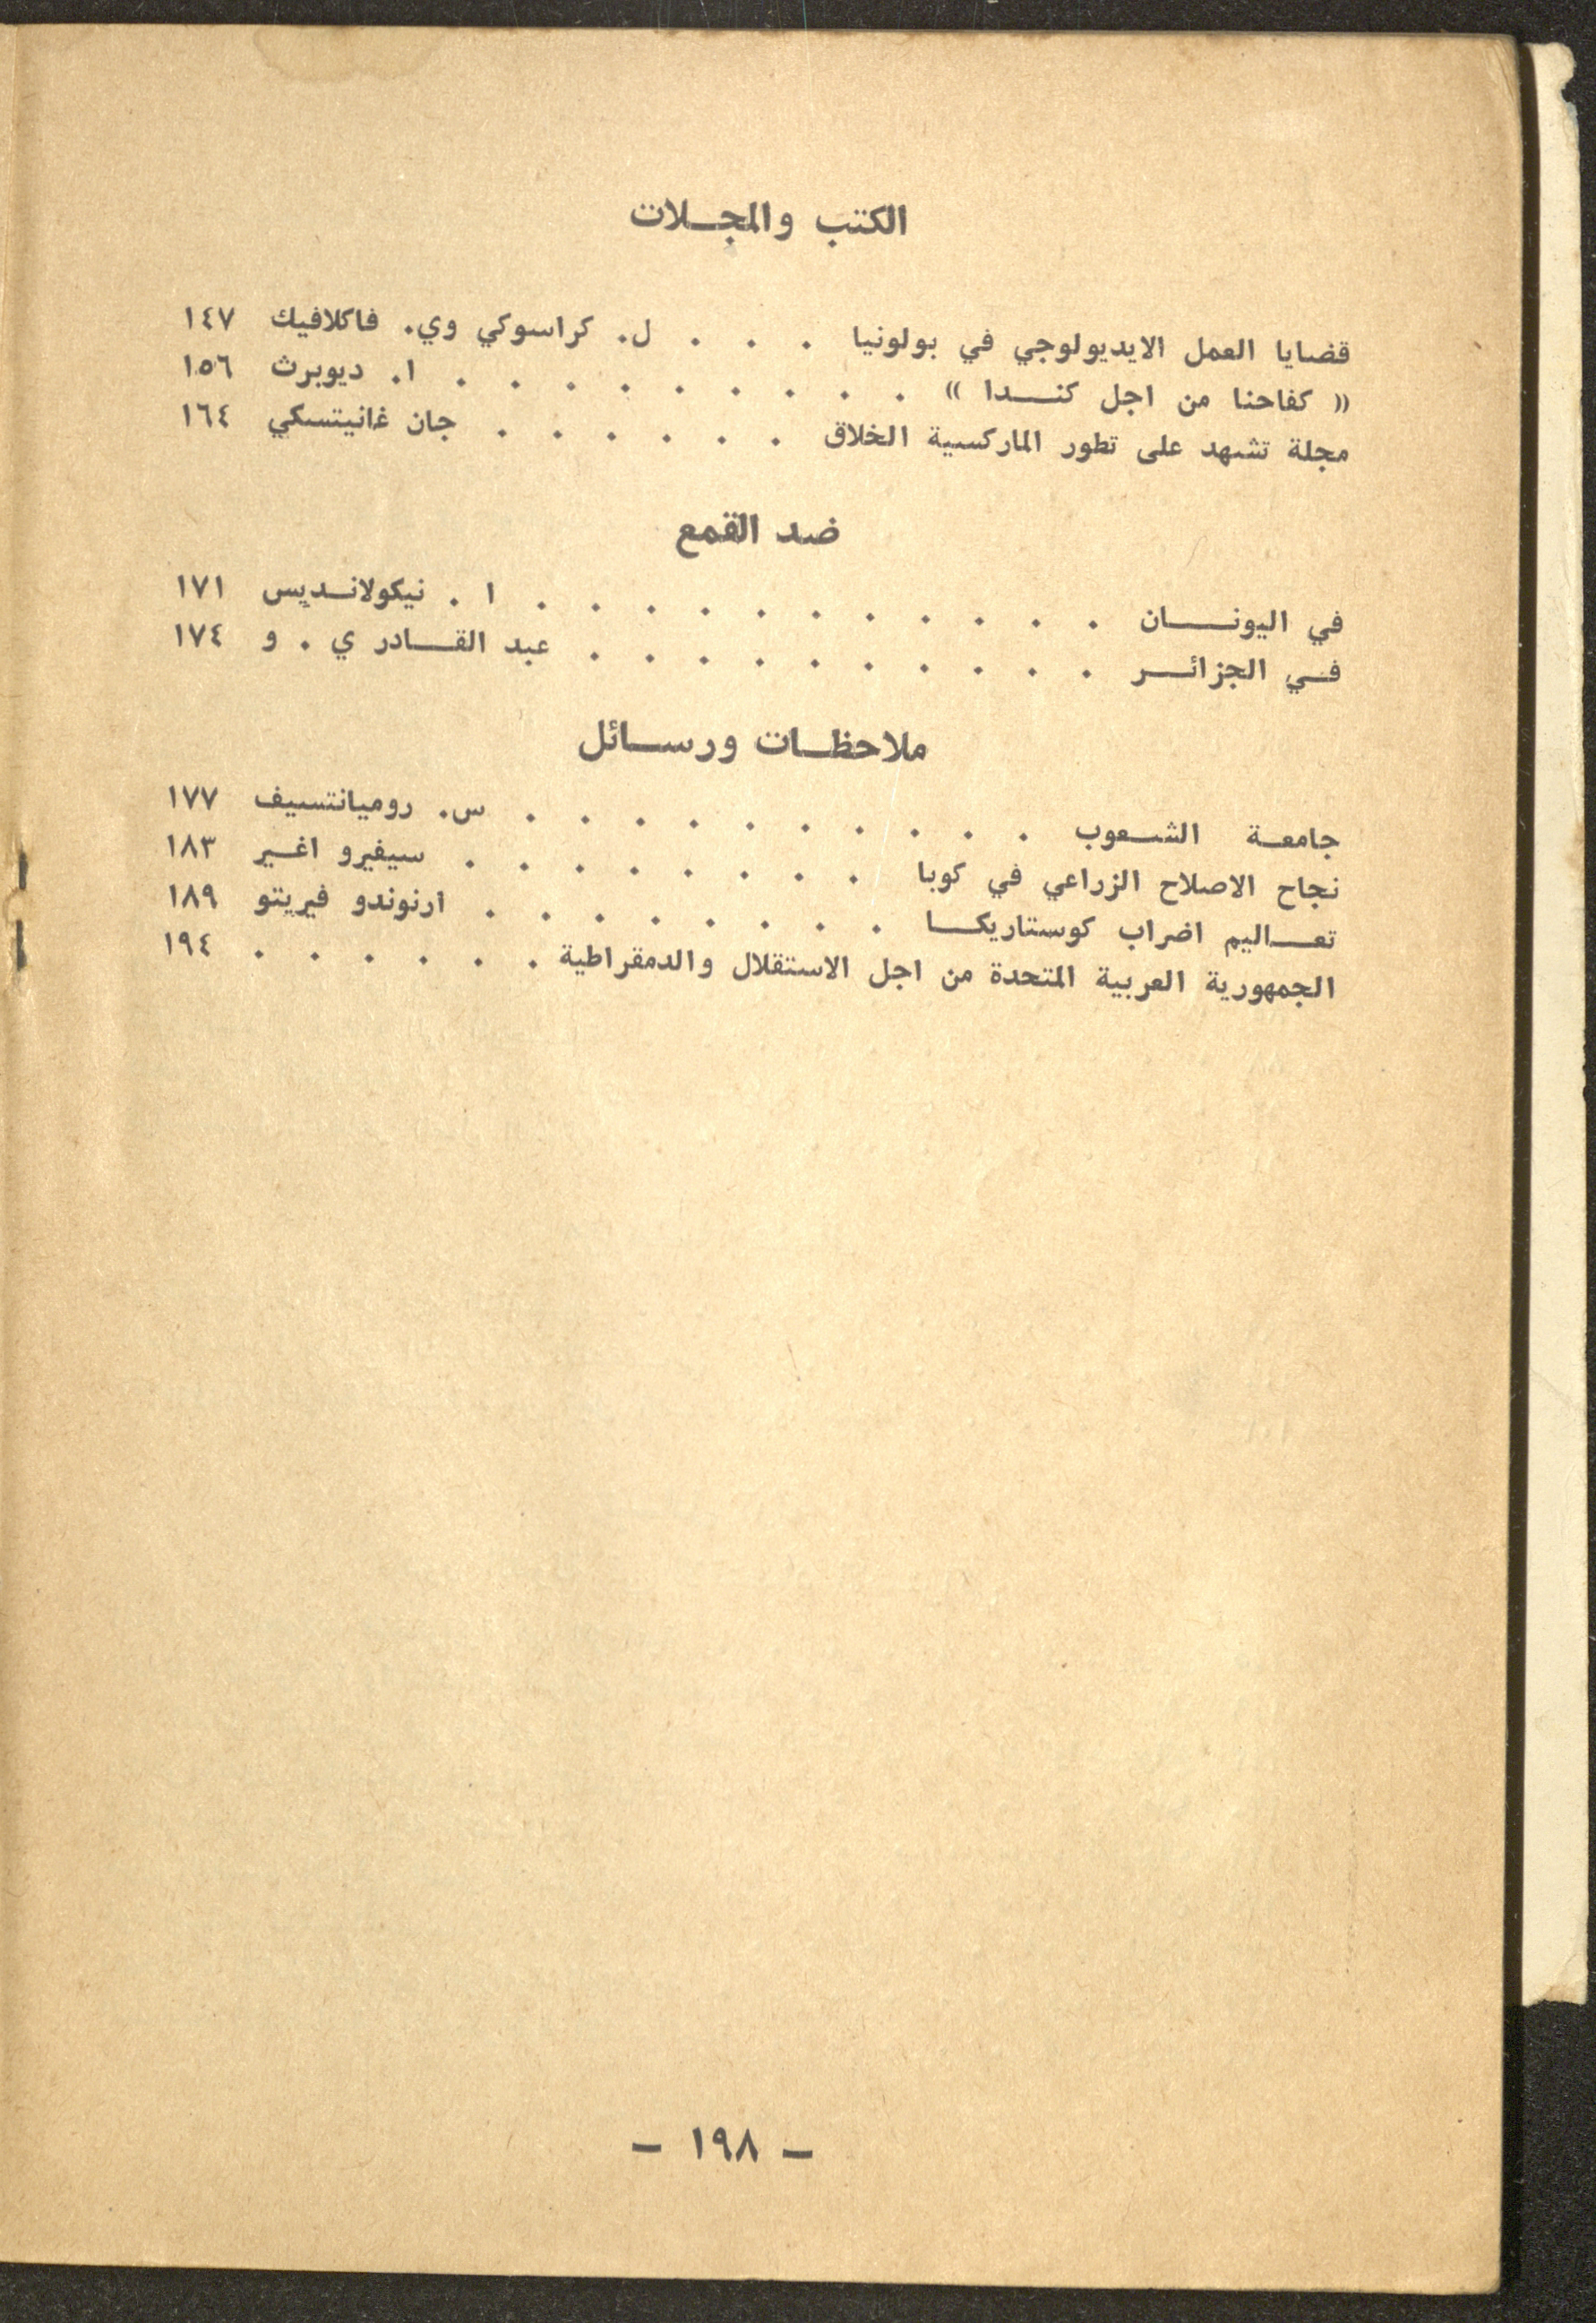 الكتب والمجلات
قضايا العمل الايديولوجي في بولونيا . . . ل. كراسوكي وي. فاكلافيك ١٤٧
« كفاحنا من اجل كندا » . . . . . . . . . ا. ديوبرث ١٥٦
مجلة تشهد على تطور الماركسية الخلاق . . . . . . جان غانيتسكي ١٦٤
ضد القمع
في اليونان . . . . . . . . . . . ا . نيكولانديس ١٧١
في الجزائر . . . . . . . . . . عبد القادر ي . و ١٧٤
ملاحظات ورسائل
جامعة الشعوب . . . . . . . . . . س. روميانتسيف ١٧٧
نجاح الاصلاح الزراعي في كوبا . . . . . . . . سيفيرو اغير ١٨٣
تعاليم اضراب كوستاريكا . . . . . . . . ارنوندو فيريتو ١٨٩
الجمهورية العربية المتحدة من اجل الاستقلال والدمقراطية . . . . . . ١٩٤
– ١٩٨ –